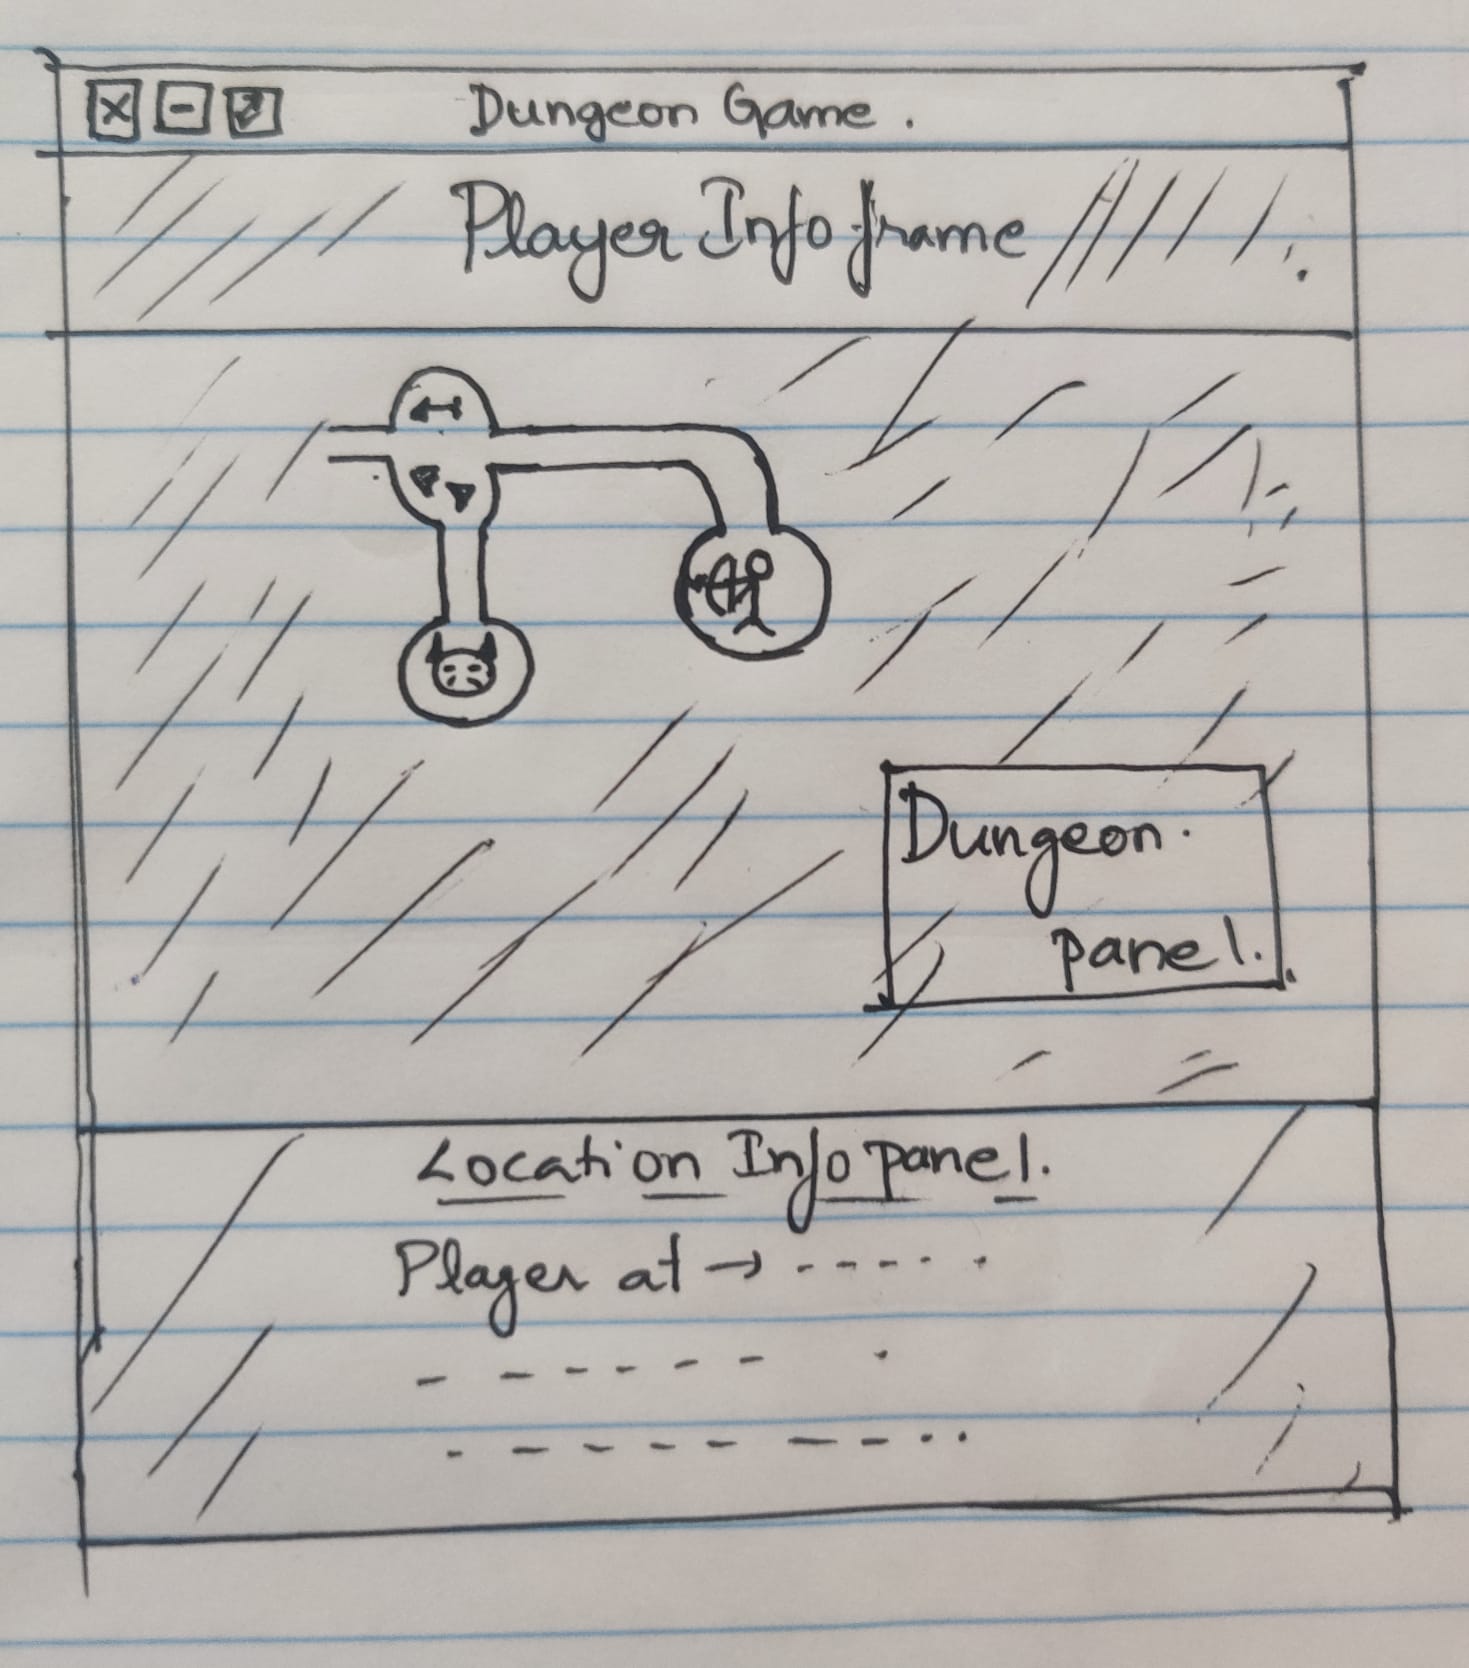 Dungeon Game.
Player Info frame
Dungeon.
panel.
Location Info panel.
Player at → ------
------ .
---------..